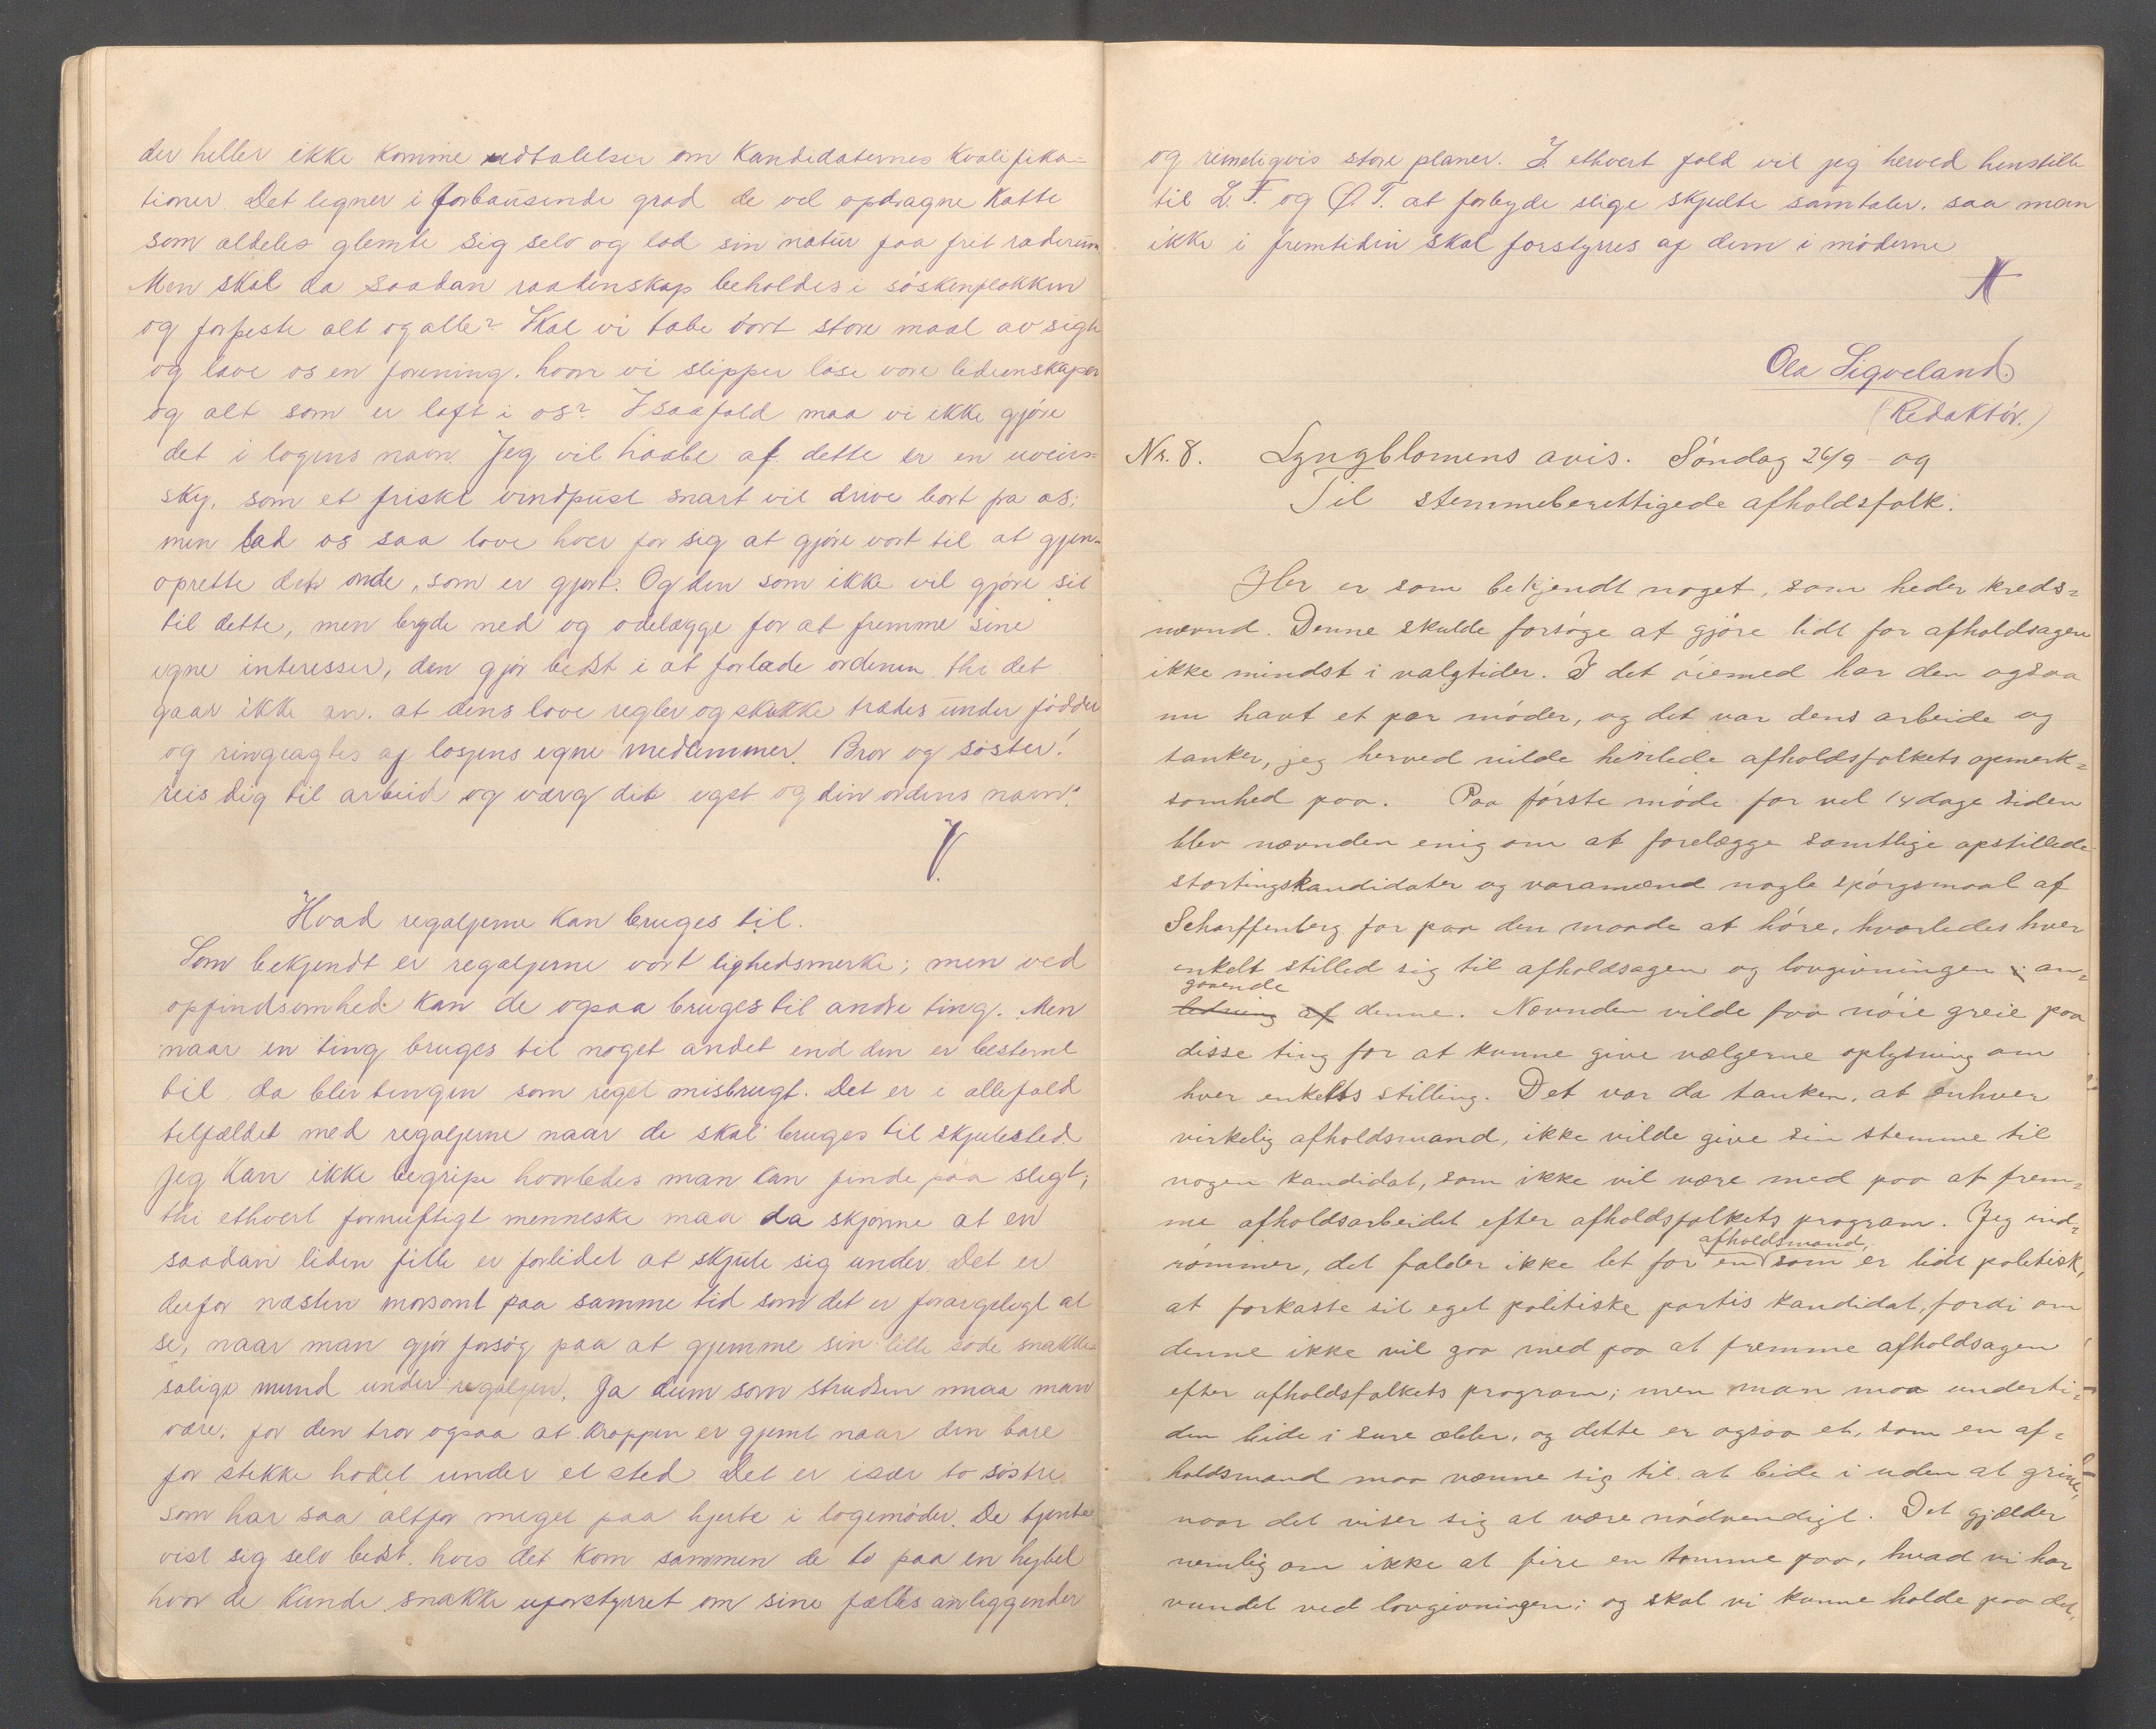 der heller ikke komme udtalelser om kandidaternes kvalifika-
tioner. Det ligner i forbausende grad de vel opdragne katte
som aldeles glemte sig selv og lod sin natur faa frit raderum.
Men skal da saadan raatenskap beholdes i søskenflokken
og forpeste alt og alle? Skal vi tabe vort store maal av sigte
og lave os en forening, hvor vi slipper løse vore lidenskaper
og alt som er lavt i os? I saafald maa vi ikke gjøre
det i logens navn. Jeg vil haabe af dette er en uveirs-
sky, som et friskt vindpust snart vil drive bort fra os;
men lad os saa love hver for sig at gjøre vort til at gjen-
oprette det onde, som er gjort. Og den som ikke vil gjøre sit
til dette, men bryde ned og ødelægge for at fremme sine
egne interesser, den gjør bedst i at forlade ordenen, thi det
gaar ikke an, at dens love regler og skikke trædes under fødder
og ringeagtes af losjens egne medlemmer. Bror og søster!
reis dig til arbeid og værg dit eget og din ordens navn!
V.
Hvad regaljerne kan bruges til.
Som bekjendt er regaljerne vort lighedsmerke; men ved
opfindsomhed kan de ogsaa bruges til andre ting. Men
naar en ting bruges til noget andet end den er bestemt
til, da blir tingen som regel misbrugt. Det er i allefald
tilfældet med regaljerne naar de skal bruges til skjulested
Jeg kan ikke begripe hvorledes man kan finde paa sligt;
thi ethvert fornuftigt menneske maa da skjønne at en
saadan liden fille er forlidet at skjule sig under. Det er
derfor næsten morsomt paa samme tid som det er forargeligt at
se, naar man gjør forsøg paa at gjemme sin lille søde snakke-
salige mund under regaljen. Ja dum som strudsen maa man
være; for den tror ogsaa at kroppen er gjemt naar den bare
for stekke hodet under et sted. Det er især to søstre
som har saa altfor meget paa hjerte i logemøder. De tjente
vist sig selv bedst, hvis det kom sammen de to paa en hybel
hvor de kunde snakke uforstyrret om sine fælles anliggender
og rimeligvis store planer. I ethvert fald vil jeg herved henstille
til L.F. og Ø.T. at forbyde slige skjulte samtaler, saa man
ikke i fremtiden skal forstyrres af dem i møderne
Ola Sigveland.
(Redaktør.)
Nr. 8. Lyngblomens avis. Søndag 26/9 - og
Til stemmeberettigede afholdsfolk.
Her er som bekjendt noget, som heder kreds-
nævnd. Denne skulde forsøge at gjøre lidt for afholdsagen
ikke mindst i valgtider. I det øiemed har den ogsaa
nu havt et par møder, og det var dens arbeide og
tanker, jeg herved vilde henlede afholdsfolkets opmerk-
somhed paa. Paa første møde for vel 14 dage siden
blev nævnden enig om at forelægge samtlige opstillede
stortingskandidater og varamænd nogle spørgsmaal af
Scharffenberg for paa den maade at høre, hvorledes hver
enkelt stilled sig til afholdsagen og lovgivningen i an-
gaaende
ledning af denne. Nævnden vilde faa nøie greie paa
disse ting for at kunne give vælgerne oplysning om
hver enkelts stilling. Det var da tanken, at enhver
virkelig afholdsmand, ikke vilde give sin stemme til
nogen kandidat, som ikke vil være med paa at frem-
me afholdsarbeidet efter afholdsfolkets program. Jeg ind-
afholdsmand,
rømmer, det falder ikke let for en som er lidt politisk,
at forkaste sit eget politiske partis kandidat, fordi om
denne ikke vil gaa med paa at fremme afholdsagen
efter afholdsfolkets program; men man maa underti-
den bide i sure æbler, og dette er ogsaa et, som en af-
holdsmand maa vænne sig til at bide i uden at grine,
naar det viser sig at være nødvendigt. Det gjælder
nemlig om ikke at fire en tomme paa, hvad vi har
vundet ved lovgivningen; og skal vi kunne holde paa det,